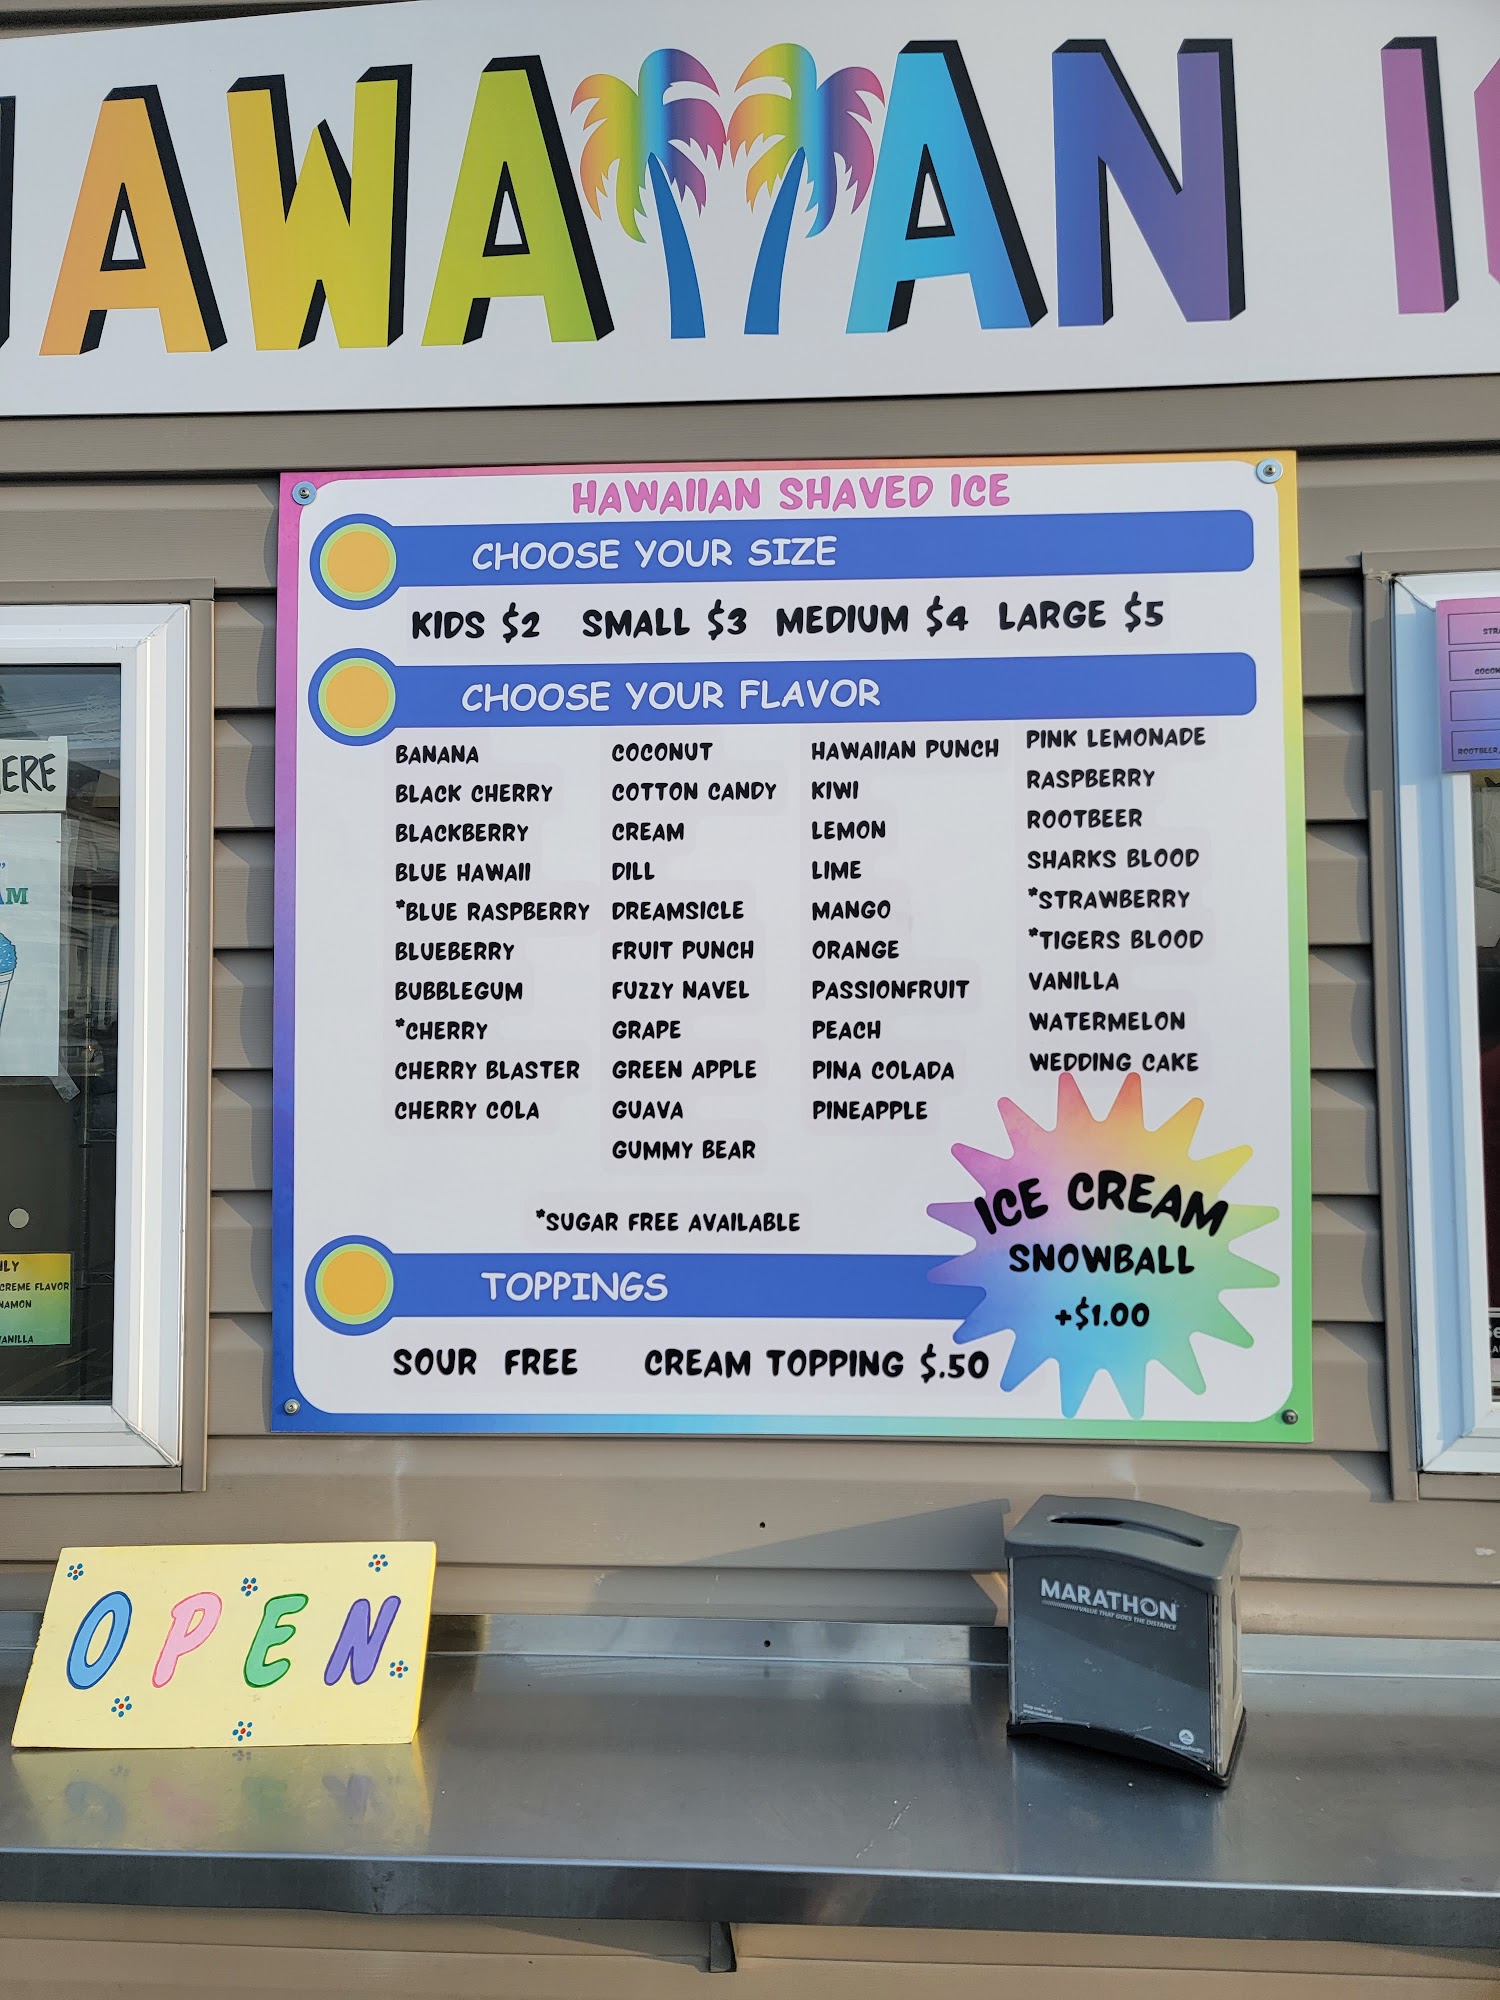 AWAIIAN I
HAWAIIAN SHAVED ICE
CHOOSE YOUR SIZE
KIDS $2 SMALL $3 MEDIUM $4 LARGE $5
CHOOSE YOUR FLAVOR
BANANA
BLACK CHERRY
BLACKBERRY
BLUE HAWAII
*BLUE RASPBERRY
BLUEBERRY
BUBBLEGUM
*CHERRY
CHERRY BLASTER
CHERRY COLA
COCONUT
COTTON CANDY
CREAM
DILL
DREAMSICLE
FRUIT PUNCH
FUZZY NAVEL
GRAPE
GREEN APPLE
GUAVA
GUMMY BEAR
HAWAIIAN PUNCH
KIWI
LEMON
LIME
MANGO
ORANGE
PASSIONFRUIT
PEACH
PINA COLADA
PINEAPPLE
PINK LEMONADE
RASPBERRY
ROOTBEER
SHARKS BLOOD
*STRAWBERRY
*TIGERS BLOOD
VANILLA
WATERMELON
WEDDING CAKE
*SUGAR FREE AVAILABLE
ICE CREAM
SNOWBALL
+$1.00
TOPPINGS
SOUR FREE CREAM TOPPING $.50
ERE
AM
LY
CREME FLAVOR
NAMON
VANILLA
STRA
COCON
ROOTBEER,
OPEN
MARATHON
VALUE THAT GOES THE DISTANCE
Georgia-Pacific